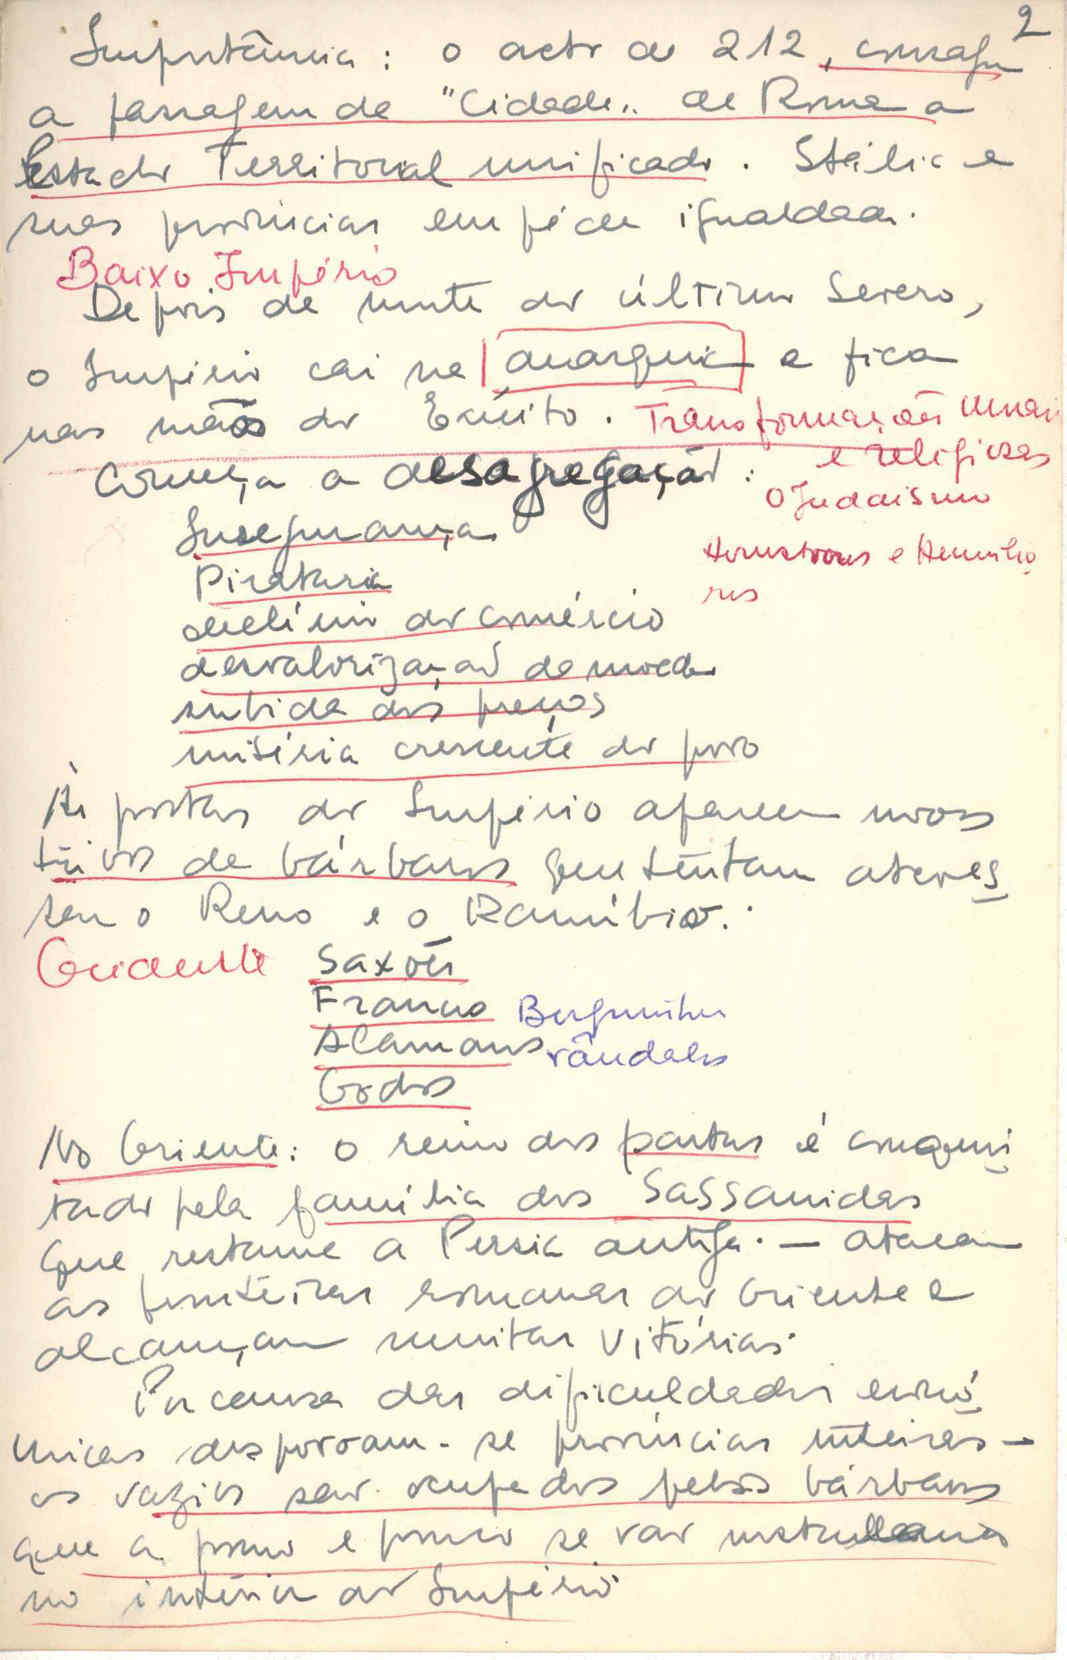 2
Importância: o acto de 212, consagra
a passagem da "Cidade" de Roma a
Estado Territorial unificado. Itália e
suas províncias em pé de igualdade.
Baixo Império
Depois da morte do último Severo,
o Império cai na anarquia e fica
nas mãos do Exército. Transformações
e religiosas
Começa a desagregação:
O Judaísmo
Insegurança
Honestiores e Humilio
res
Pirataria
declínio do comércio
desvalorização da moeda
subida dos preços
miséria crescente do povo
Às portas do Império aparecem novos
de bárbaros que tentam atraves
sar o Reno e o Danúbio.
Ocidente Saxões
Francos Burgúndios
Alamanos Vândalos
Godos
No Oriente: o reino dos partas é conquis
tado pela família dos Sassanidas
que restaura a Pérsia antiga. — atacam
as fronteiras romanas do Oriente e
alcançam muitas vitórias.
Por causa das dificuldades econó
micas despovoam-se províncias inteiras —
os vazios são ocupados pelos bárbaros
que a pouco e pouco se vão instalando
no interior do Império